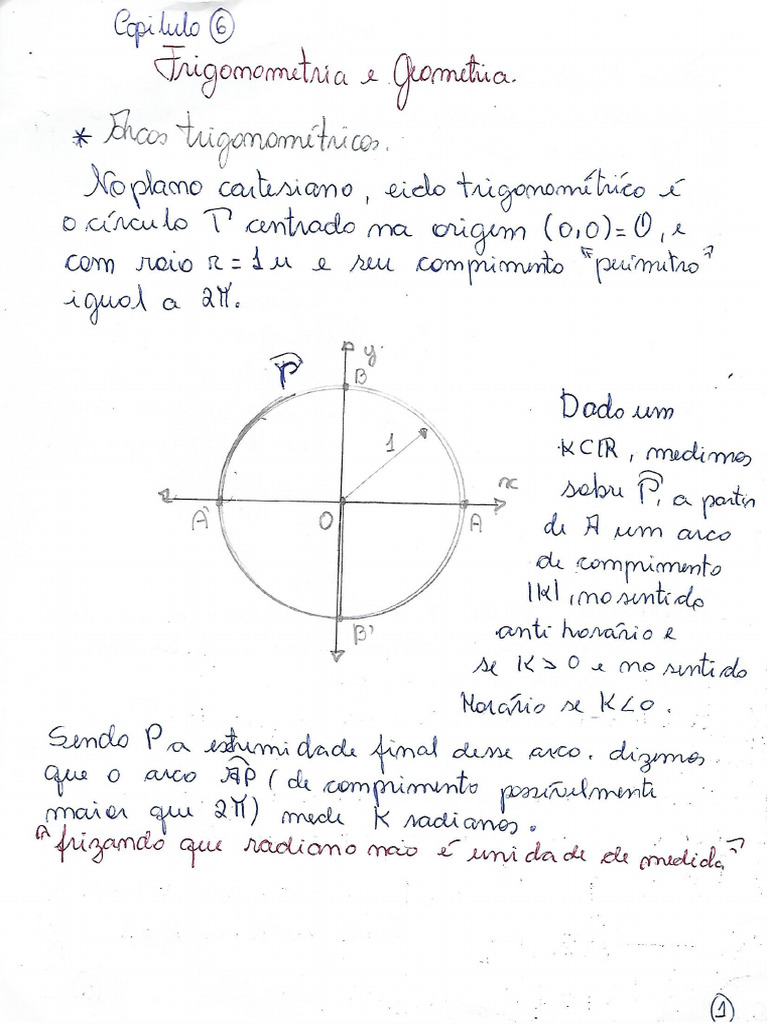 Capitulo 6
Trigonometria e Geometria.
* Arcos trigonométricos.
No plano cartesiano, ciclo trigonométrico é
o círculo Γ centrado na origem (0,0)=O, e
com raio r = 1u e seu comprimento "perímetro"
igual a 2π.
y
B
1
x
A'
O
A
B'
Dado um
K⊂R, medimos
sobre Γ, a partir
de A um arco
de comprimento
|K|, no sentido
anti horário e
se K > 0 e no sentido
Horário se K < 0.
Sendo P a estremidade final desse arco. dizemos
que o arco AP (de comprimento possívelmente
maior que 2π) mede K radianos.
"frizando que radiano não é unidade de medida"
1